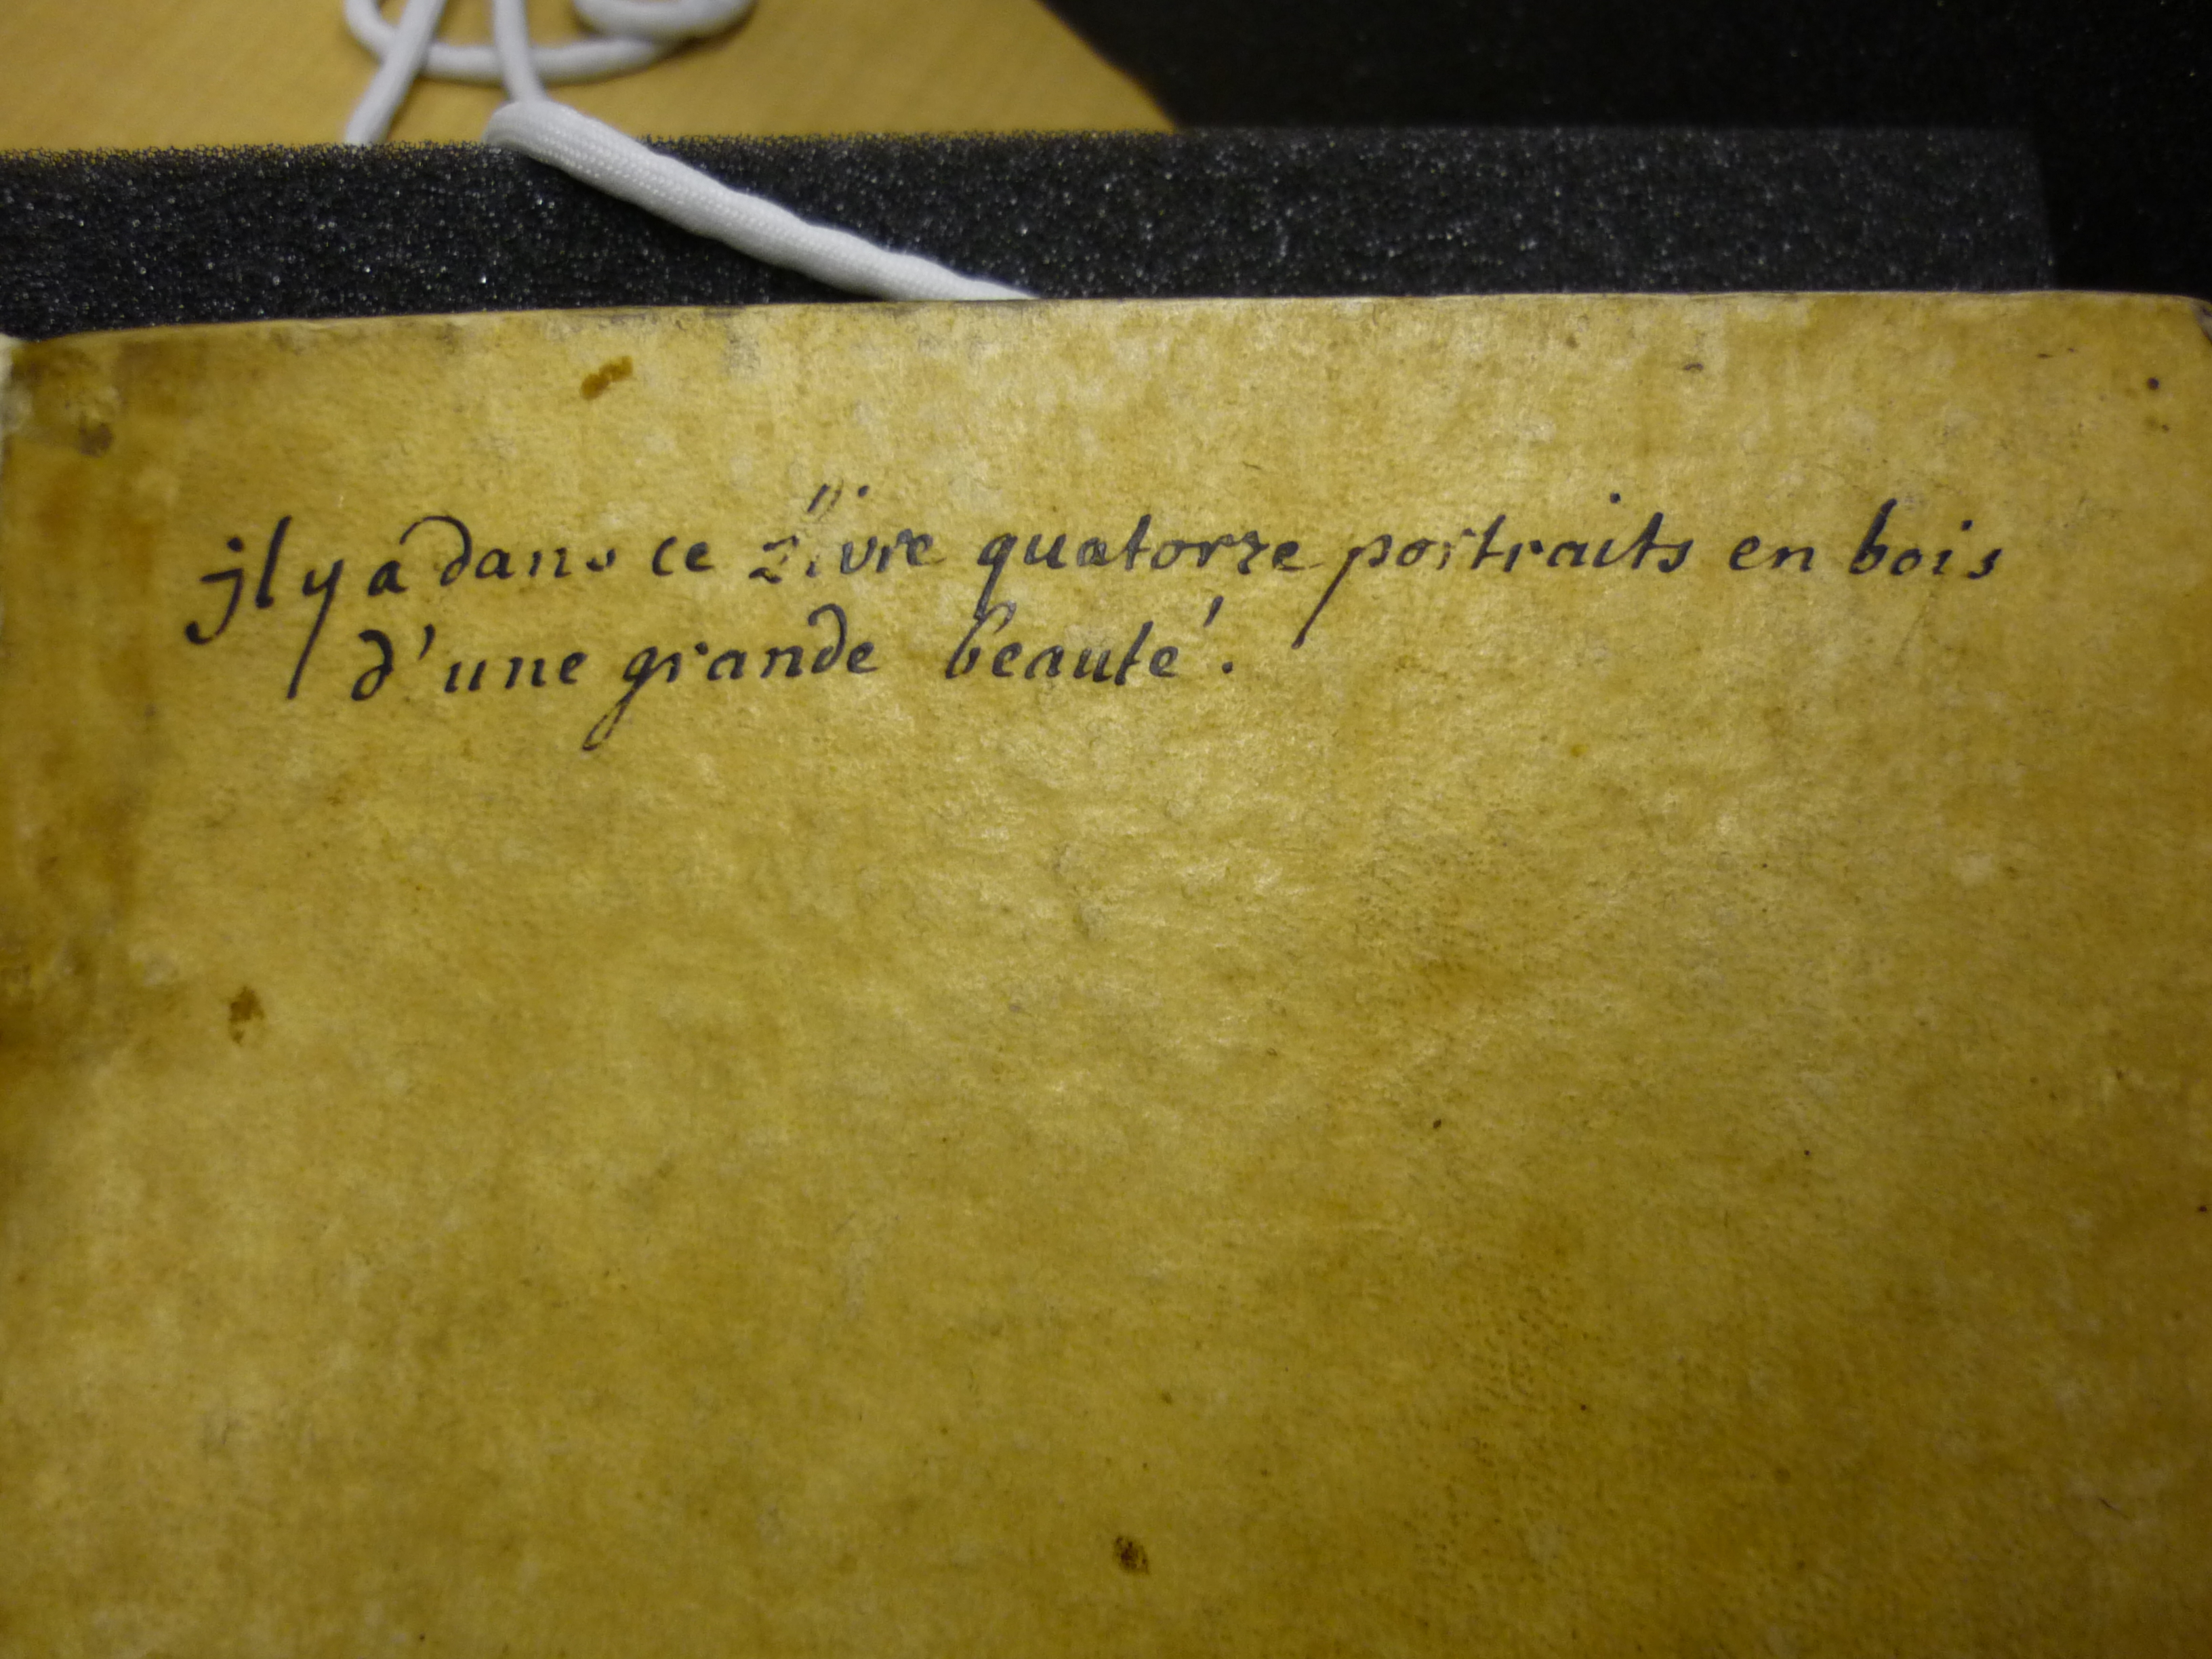 jl y a dans ce Livre quatorze portraits en bois
d'une grande beauté.